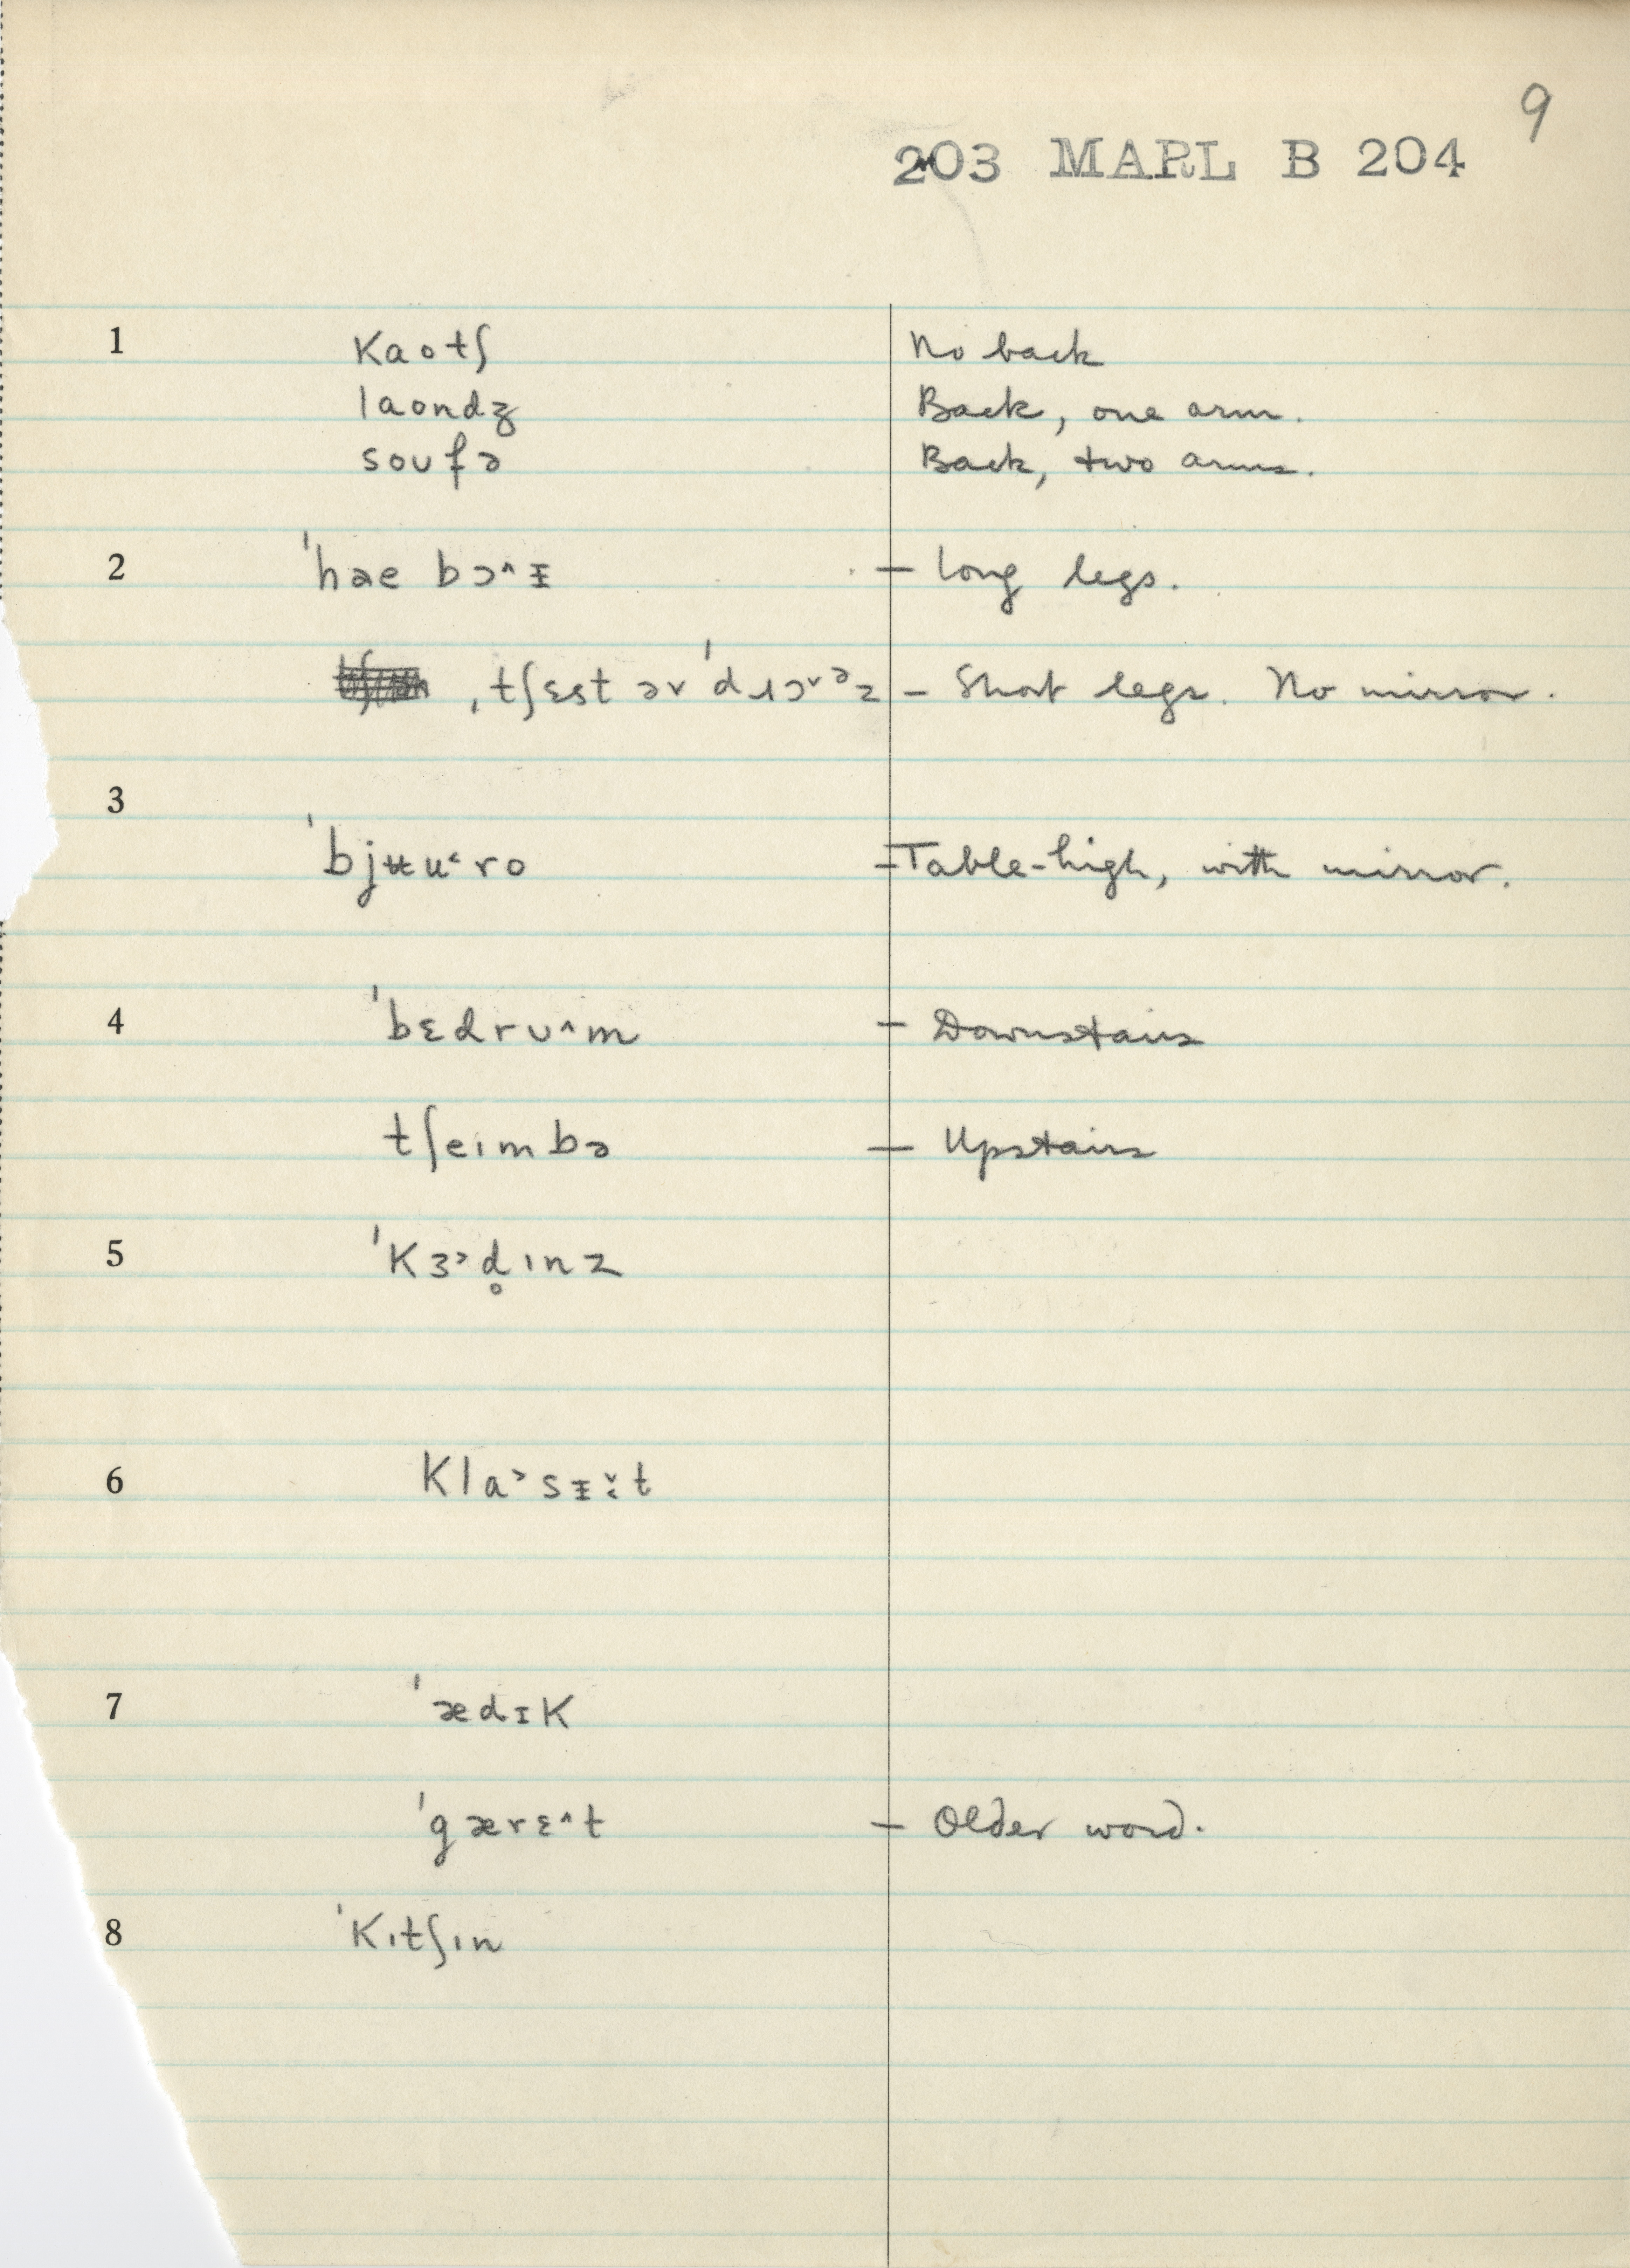 9
203 MARL B 204
1 kaotʃ No back
laondʒ Back, one arm.
soʊfə Back, two arms.
2 ˈhae bɔ^ɪ̵ – Long legs.
ˌtʃɛst əv ˈdɹɔ˅ᵊz – Short legs. No mirror.
3
ˈbjʉu˂ro – Table-high, with mirror.
4 ˈbɛdrʊ^m – Downstairs
tʃeɪmbə – Upstairs
5 ˈkɜ˃d̥ɪnz
6 kla˃sɪ̵ː˅t
7 ˈædɪk
ˈgærɛ^t – Older word.
8 ˈkɪtʃɪn